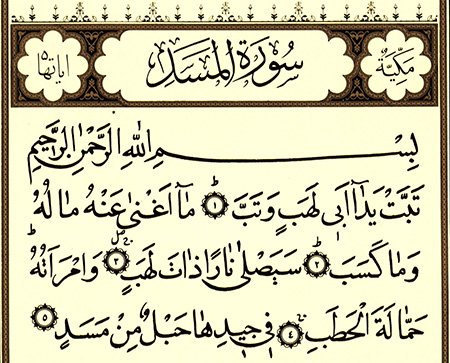 مَكِّيَّةٌ سُورَةُ الْمَسَدِ اٰيَاتُهَا ٥
بِسْمِ اللّٰهِ الرَّحْمٰنِ الرَّحِيمِ
تَبَّتْ يَدَٓا اَبٖي لَهَبٍ وَتَبَّ ١ مَٓا اَغْنٰى عَنْهُ مَالُهُ
وَمَا كَسَبَ ٢ سَيَصْلٰى نَارًا ذَاتَ لَهَبٍ ٣ وَامْرَاَتُهُ
حَمَّالَةَ الْحَطَبِ ٤ فٖي جٖيدِهَا حَبْلٌ مِنْ مَسَدٍ ٥